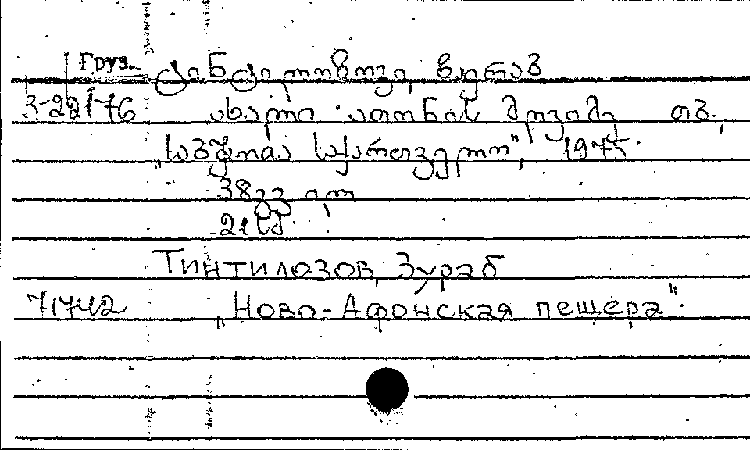 Груз.
ტინტილოზოვი, ზურაბ
3-22176 ახალი ათონის მღვიმე თბ.,
„საბჭოთა საქართველო", 1975.
38გვ
21სმ
Тинтилозов, Зураб
71742 „Ново-Афонская пещера".